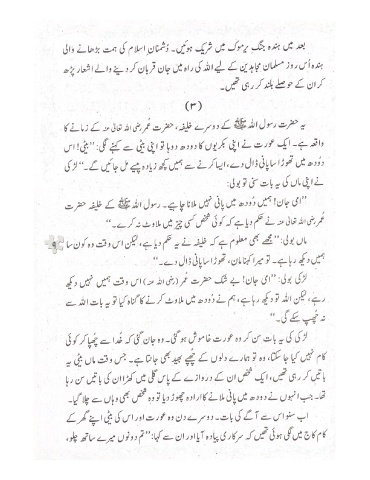 بعد میں ہندہ جنگِ یرموک میں شریک ہوئیں۔ دُشمنانِ اسلام کی ہمت بڑھانے والی
ہندہ اُس روز مسلمان مجاہدین کے لیے اللہ کی راہ میں جان قربان کر دینے والے اشعار پڑھ
کر ان کے حوصلے بلند کر رہی تھیں۔
(۳)
یہ حضرت رسول اللہ ﷺ کے دوسرے خلیفہ، حضرت عُمر رضی اللہ تعالیٰ عنہ کے زمانے کا
واقعہ ہے۔ ایک عورت نے اپنی بکریوں کا دودھ دوہا تو اپنی بیٹی سے کہنے لگی: ”بیٹی! اس
دُودھ میں تھوڑا سا پانی ڈال دے، ایسا کرنے سے ہمیں کچھ زیادہ پیسے مل جائیں گے۔“ لڑکی
نے اپنی ماں کی یہ بات سنی تو بولی:
”امی جان! ہمیں دُودھ میں پانی نہیں ملانا چاہیے۔ رسول اللہ ﷺ کے خلیفہ حضرت
عُمر رضی اللہ تعالیٰ عنہ نے حکم دیا ہے کہ کوئی شخص کسی چیز میں ملاوٹ نہ کرے۔“
ماں بولی: ”مجھے بھی معلوم ہے کہ خلیفہ نے یہ حکم دیا ہے، لیکن اس وقت وہ کون سا
۹
ہمیں دیکھ رہا ہے۔ تو میرا کہنا مان، تھوڑا سا پانی ڈال دے۔“
لڑکی بولی: ”امی جان! بے شک حضرت عُمر (رضی اللہ عنہ) اس وقت ہمیں نہیں دیکھ
رہے، لیکن اللہ تو دیکھ رہا ہے، ہم نے دُودھ میں ملاوٹ کرنے کا گناہ کیا تو یہ بات اللہ سے
نہ چُھپ سکے گی۔“
لڑکی کی یہ بات سن کر وہ عورت خاموش ہو گئی۔ وہ جان گئی کہ خُدا سے چُھپا کر کوئی
کام نہیں کیا جا سکتا، وہ تو ہمارے دلوں کے چُھپے بھید بھی جانتا ہے۔ جس وقت ماں بیٹی یہ
باتیں کر رہی تھیں، ایک شخص ان کے دروازے کے پاس گلی میں کھڑا ان کی باتیں سن رہا
تھا۔ جب انہوں نے دودھ میں پانی ملانے کا ارادہ چھوڑ دیا تو وہ شخص بھی وہاں سے چلا گیا۔
اب سنو اس سے آگے کی بات۔ دوسرے دن وہ عورت اور اس کی بیٹی اپنے گھر کے
کام کاج میں لگی ہوئی تھیں کہ سرکاری پیادہ آیا اور ان سے کہا: ”تم دونوں میرے ساتھ چلو،